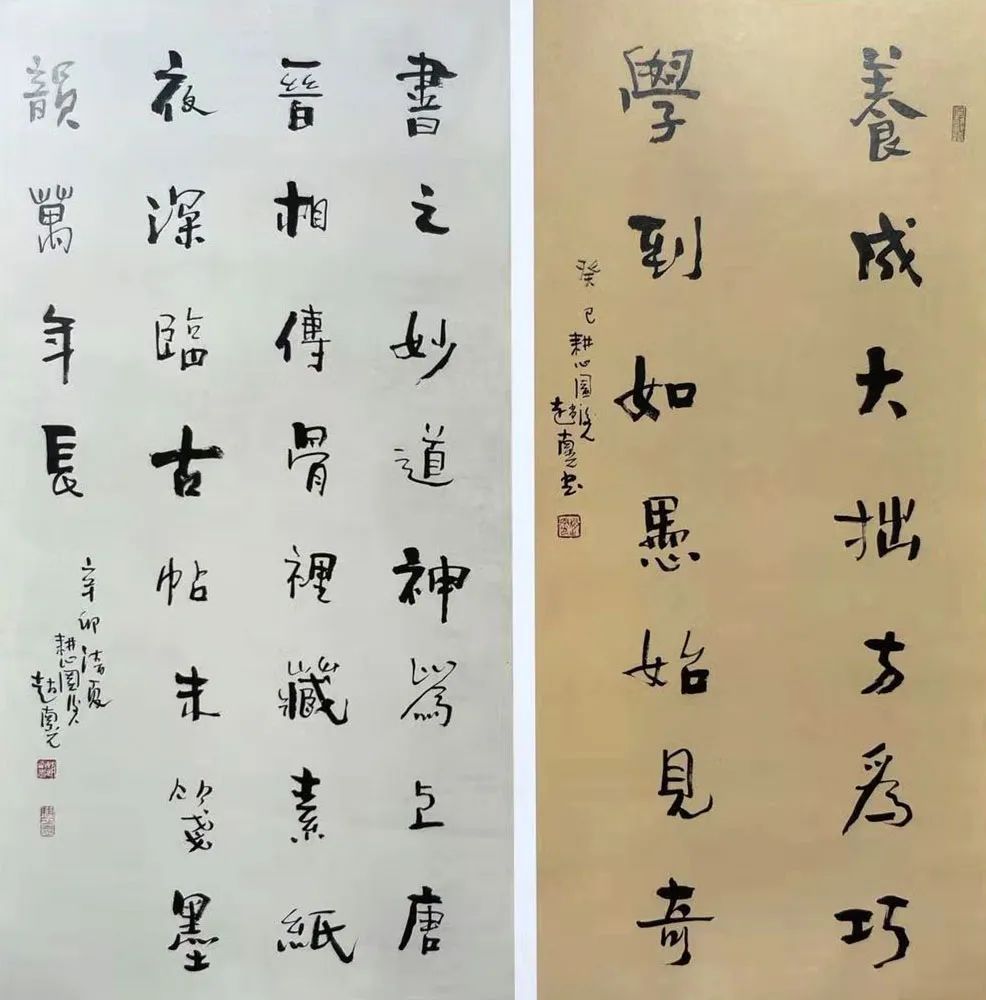 養成大拙方為巧
學到如愚始見奇
癸巳耕心園叟
趙書
書之妙道神為上唐
晉相傳骨裡藏素紙
夜深臨古帖朱箋墨
韻萬年長
辛卯清夏
耕心園叟
趙